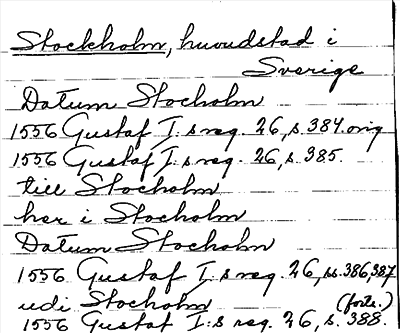 Stockholm, huvudstad i
Sverige
Datum Stocholm
1556 Gustaf I:s reg. 26, s. 384. orig
1556 Gustaf I:s reg. 26, s. 385.
till Stocholm
her i Stocholm
Datum Stocholm
1556 Gustaf I:s reg. 26, ss. 386,387
udi Stocholm (forts.)
1556 Gustaf I:s reg. 26, s. 388.